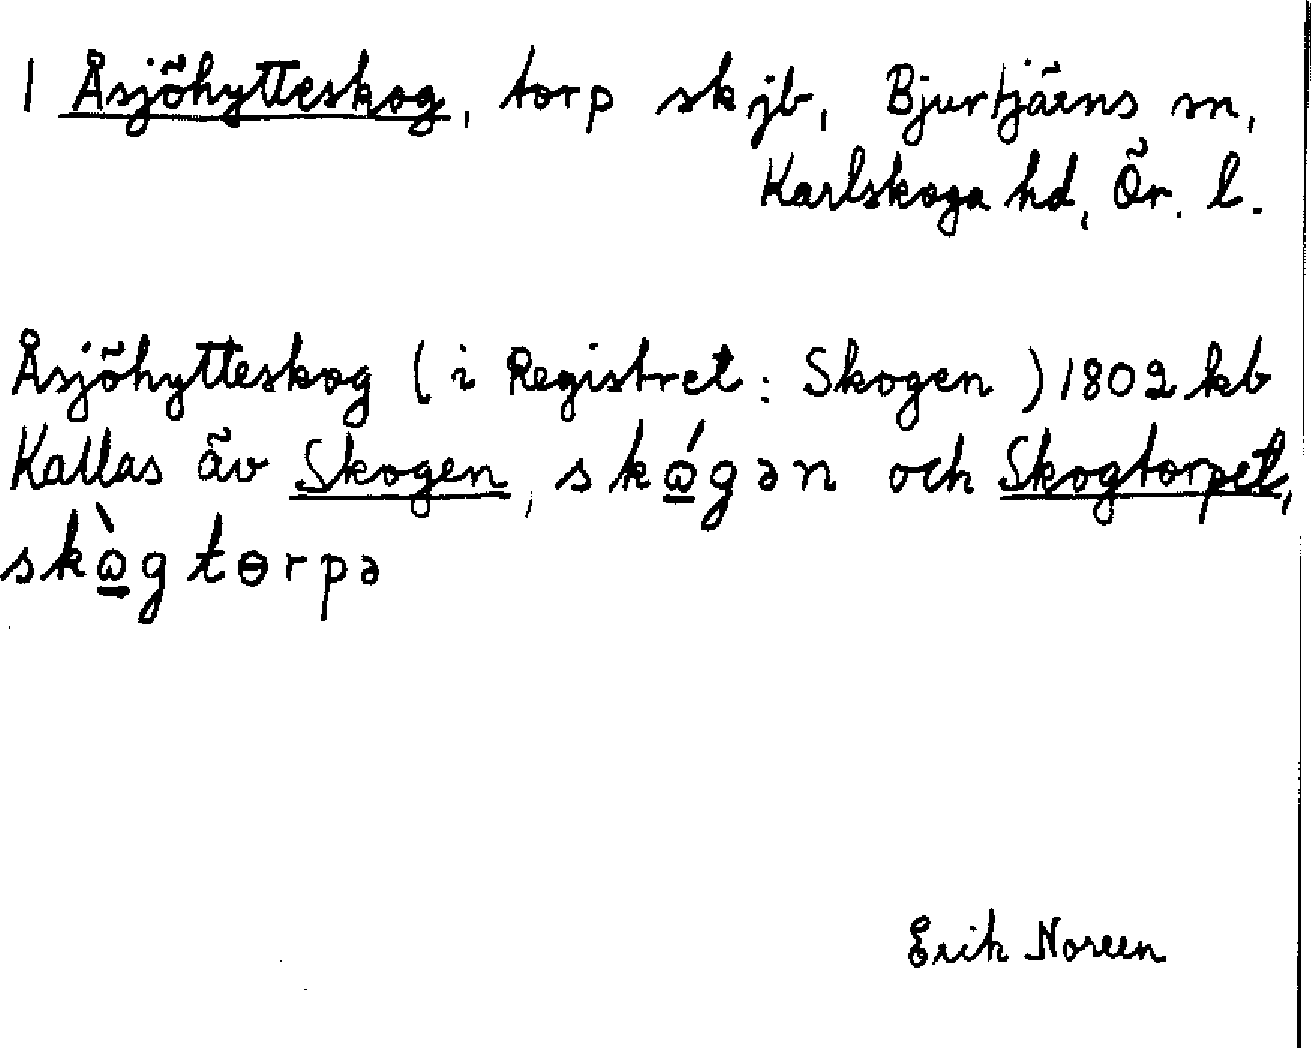 1 Åsjöhytteskog, torp skjb, Bjurtjärns sn,
Karlskoga hd, Ör. l.
Åsjöhytteskog (i Registret: Skogen) 1802 kb
Kallas äv Skogen, skώ̱gən och Skogtorpet,
skὼ̱gtɵrpə
Erik Noreen